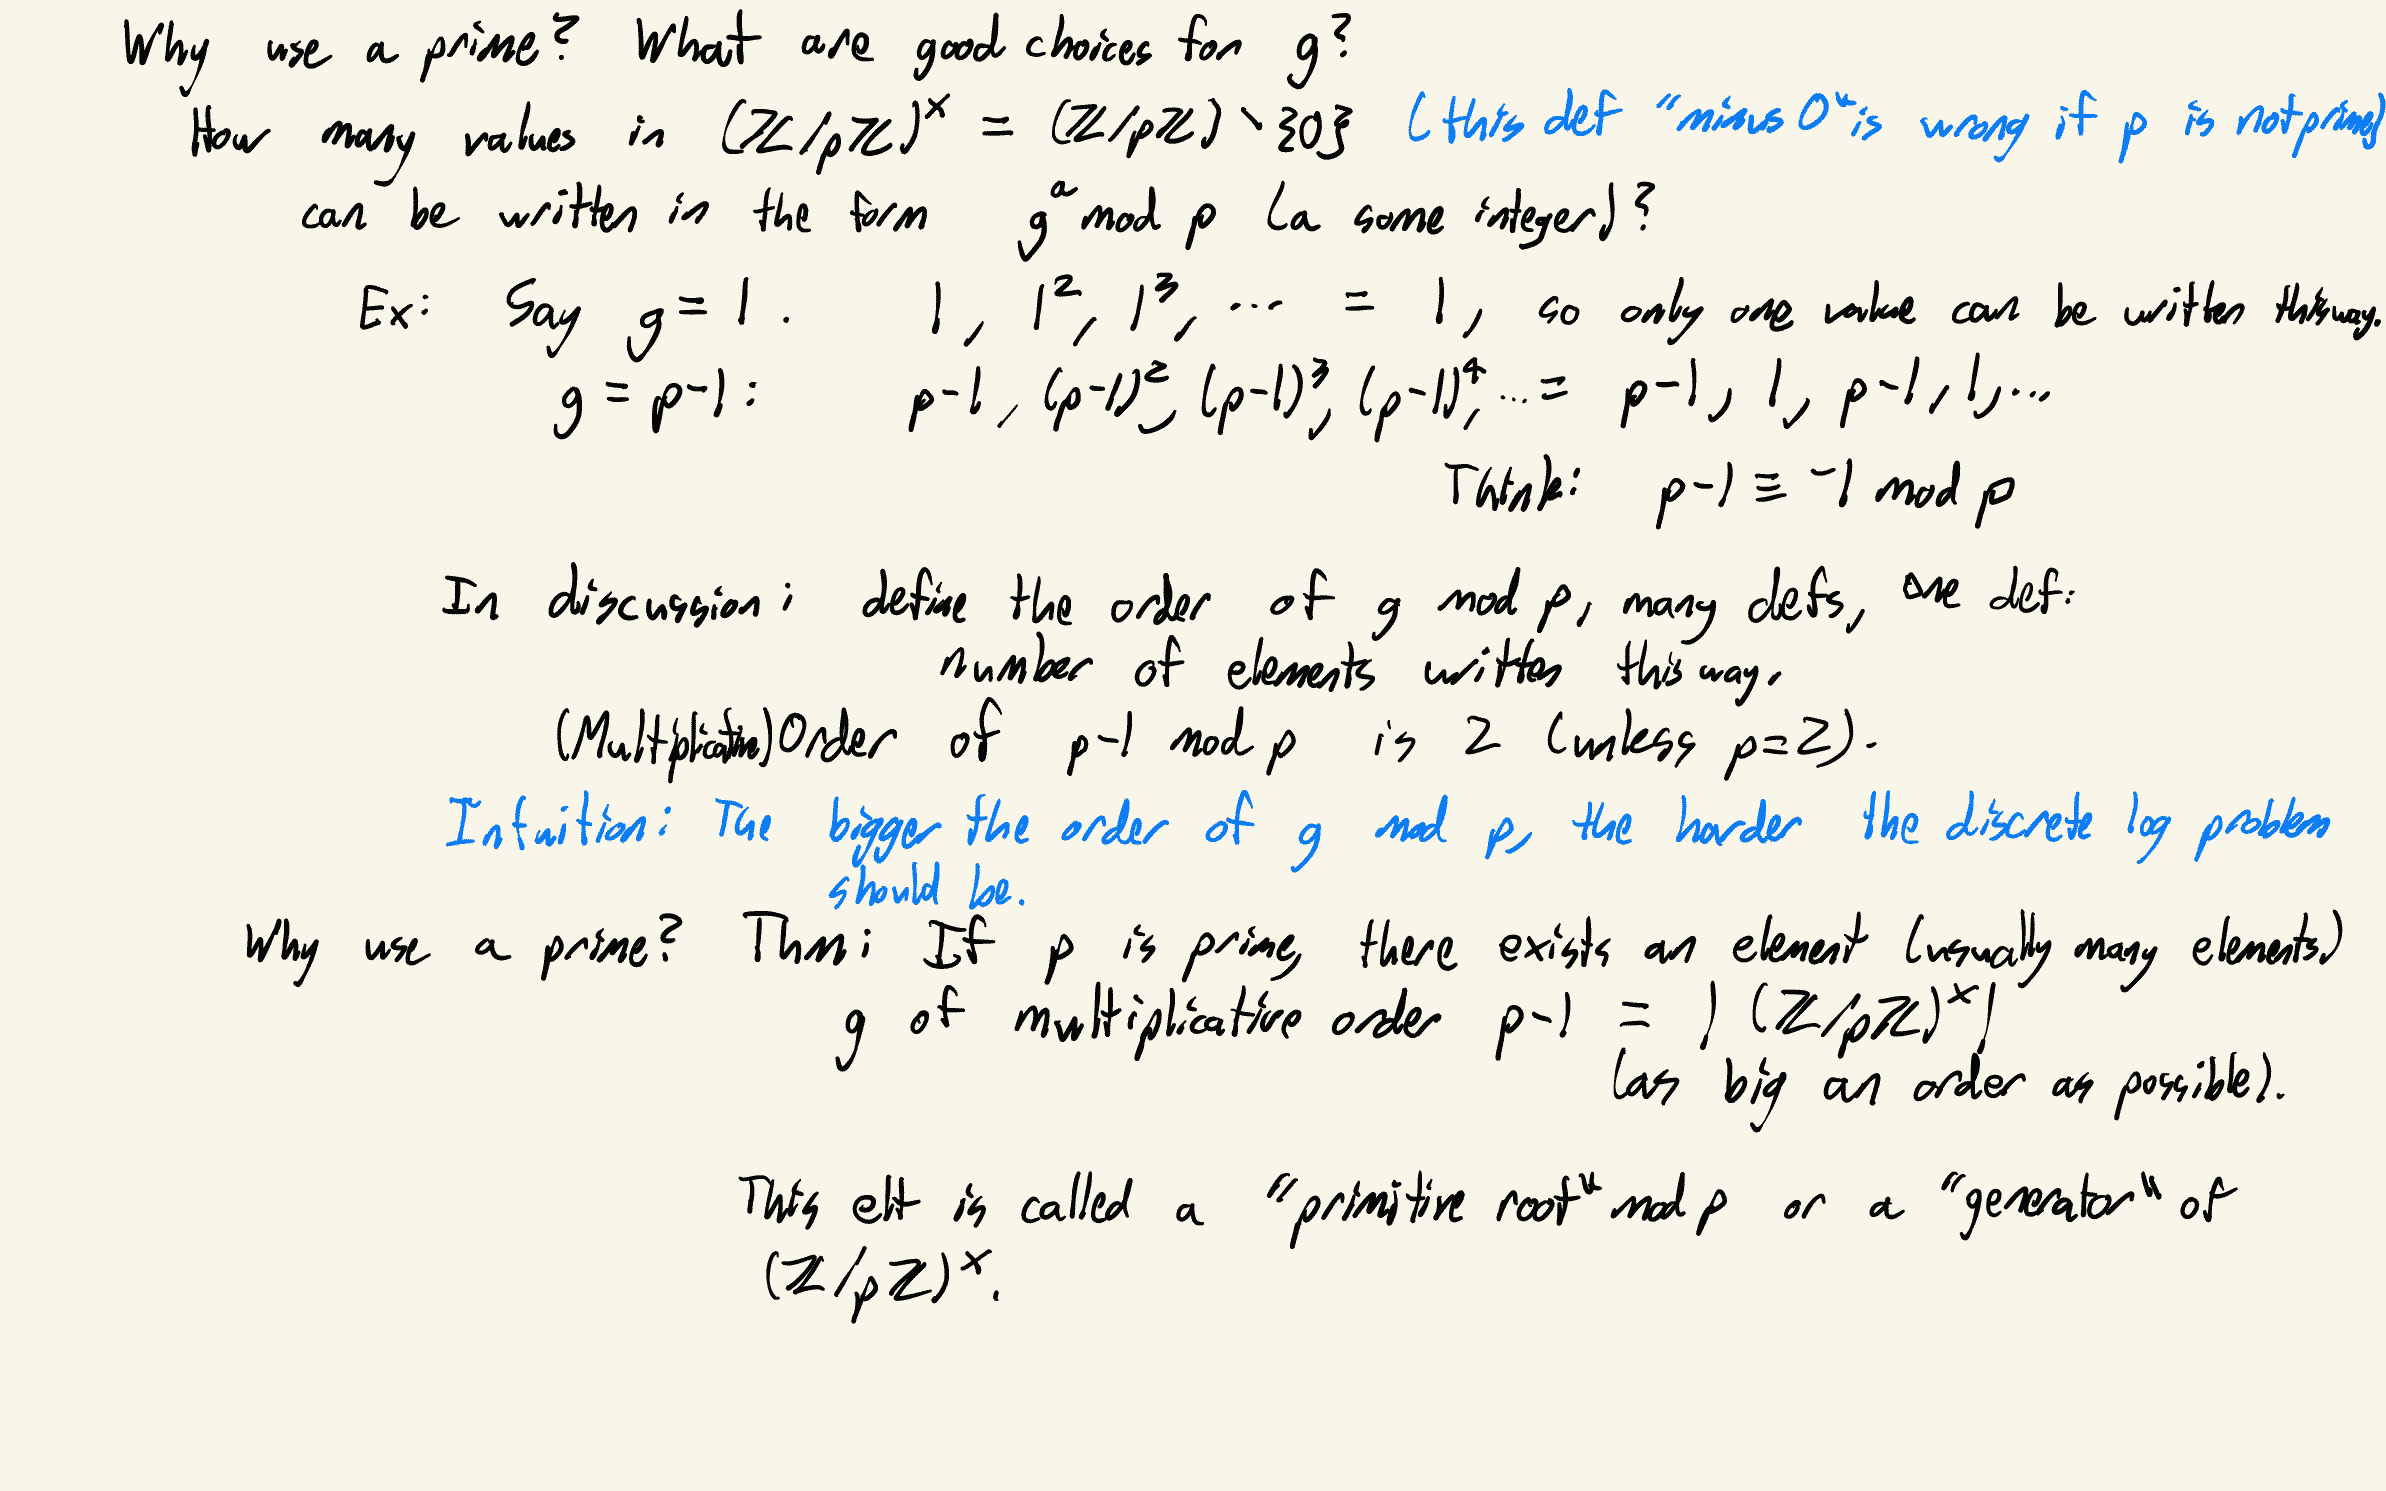 Why use a prime? What are good choices for g?
How many values in (ℤ/pℤ)^× = (ℤ/pℤ) \ {0} (this def "minus 0" is wrong if p is not prime)
can be written in the form g^a mod p (a some integer)?
Ex: Say g = 1. 1, 1^2, 1^3, ... = 1, so only one value can be written this way.
g = p-1: p-1, (p-1)^2, (p-1)^3, (p-1)^4, ... = p-1, 1, p-1, 1, ...
Think: p-1 ≡ -1 mod p
In discussion: define the order of g mod p, many defs, one def:
number of elements written this way.
(Multiplicative) Order of p-1 mod p is 2 (unless p=2).
Intuition: The bigger the order of g mod p, the harder the discrete log problem
should be.
Why use a prime? Thm: If p is prime, there exists an element (usually many elements)
g of multiplicative order p-1 = |(ℤ/pℤ)^×|
(as big an order as possible).
This elt is called a "primitive root" mod p or a "generator" of
(ℤ/pℤ)^×.